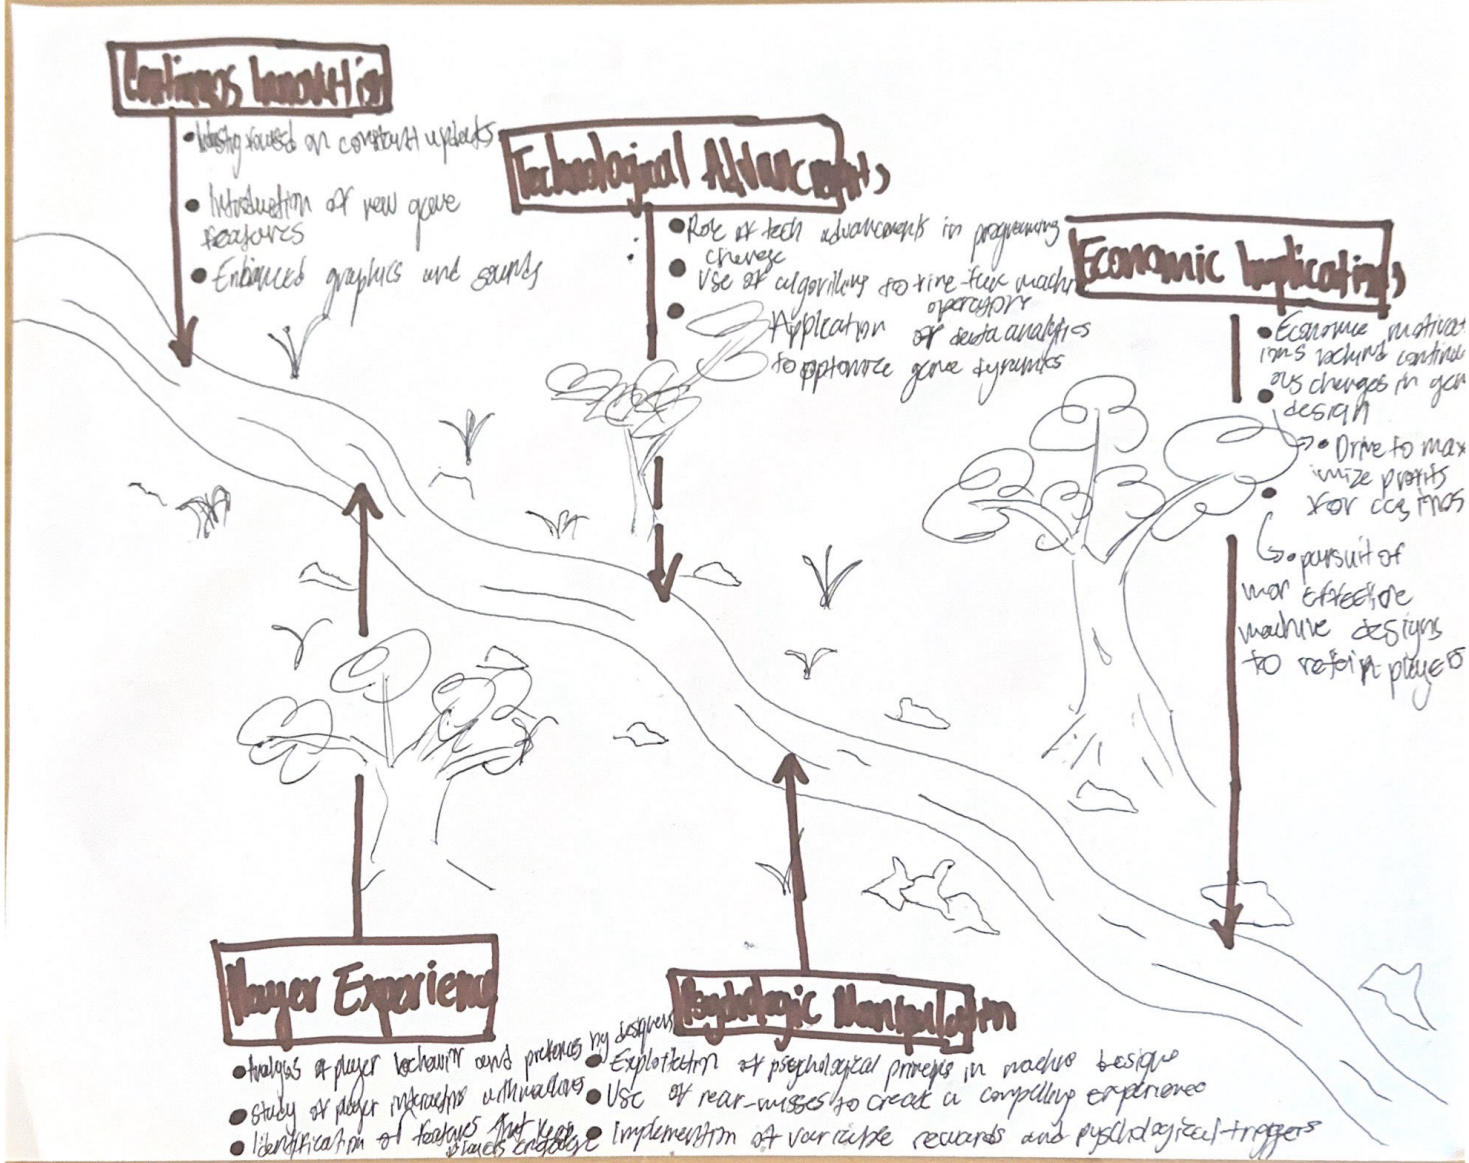 Continuos Innovation
focused on constant updates
Introduction of new game
features
Enhanced graphics and sounds
Technological Advancments
Role of tech advancements in programming
change
Use of algorithms to fine-tune machine
operations
Application of data analytics
to optomize game dynamics
Economic Implications
Economic motivat
ions behind continu
ous changes in gam
design
Drive to max
imize profits
for casinos
pursuit of
mor effective
machine designs
to retain players
Player Experience
Analysis of player behavior and by designers
Study of player interactions
Identification of features that keep
players
Psychologic Manipulation
of psychological in machine
Use of near-misses to create a compelling experience
of variable rewards and pyschological triggers